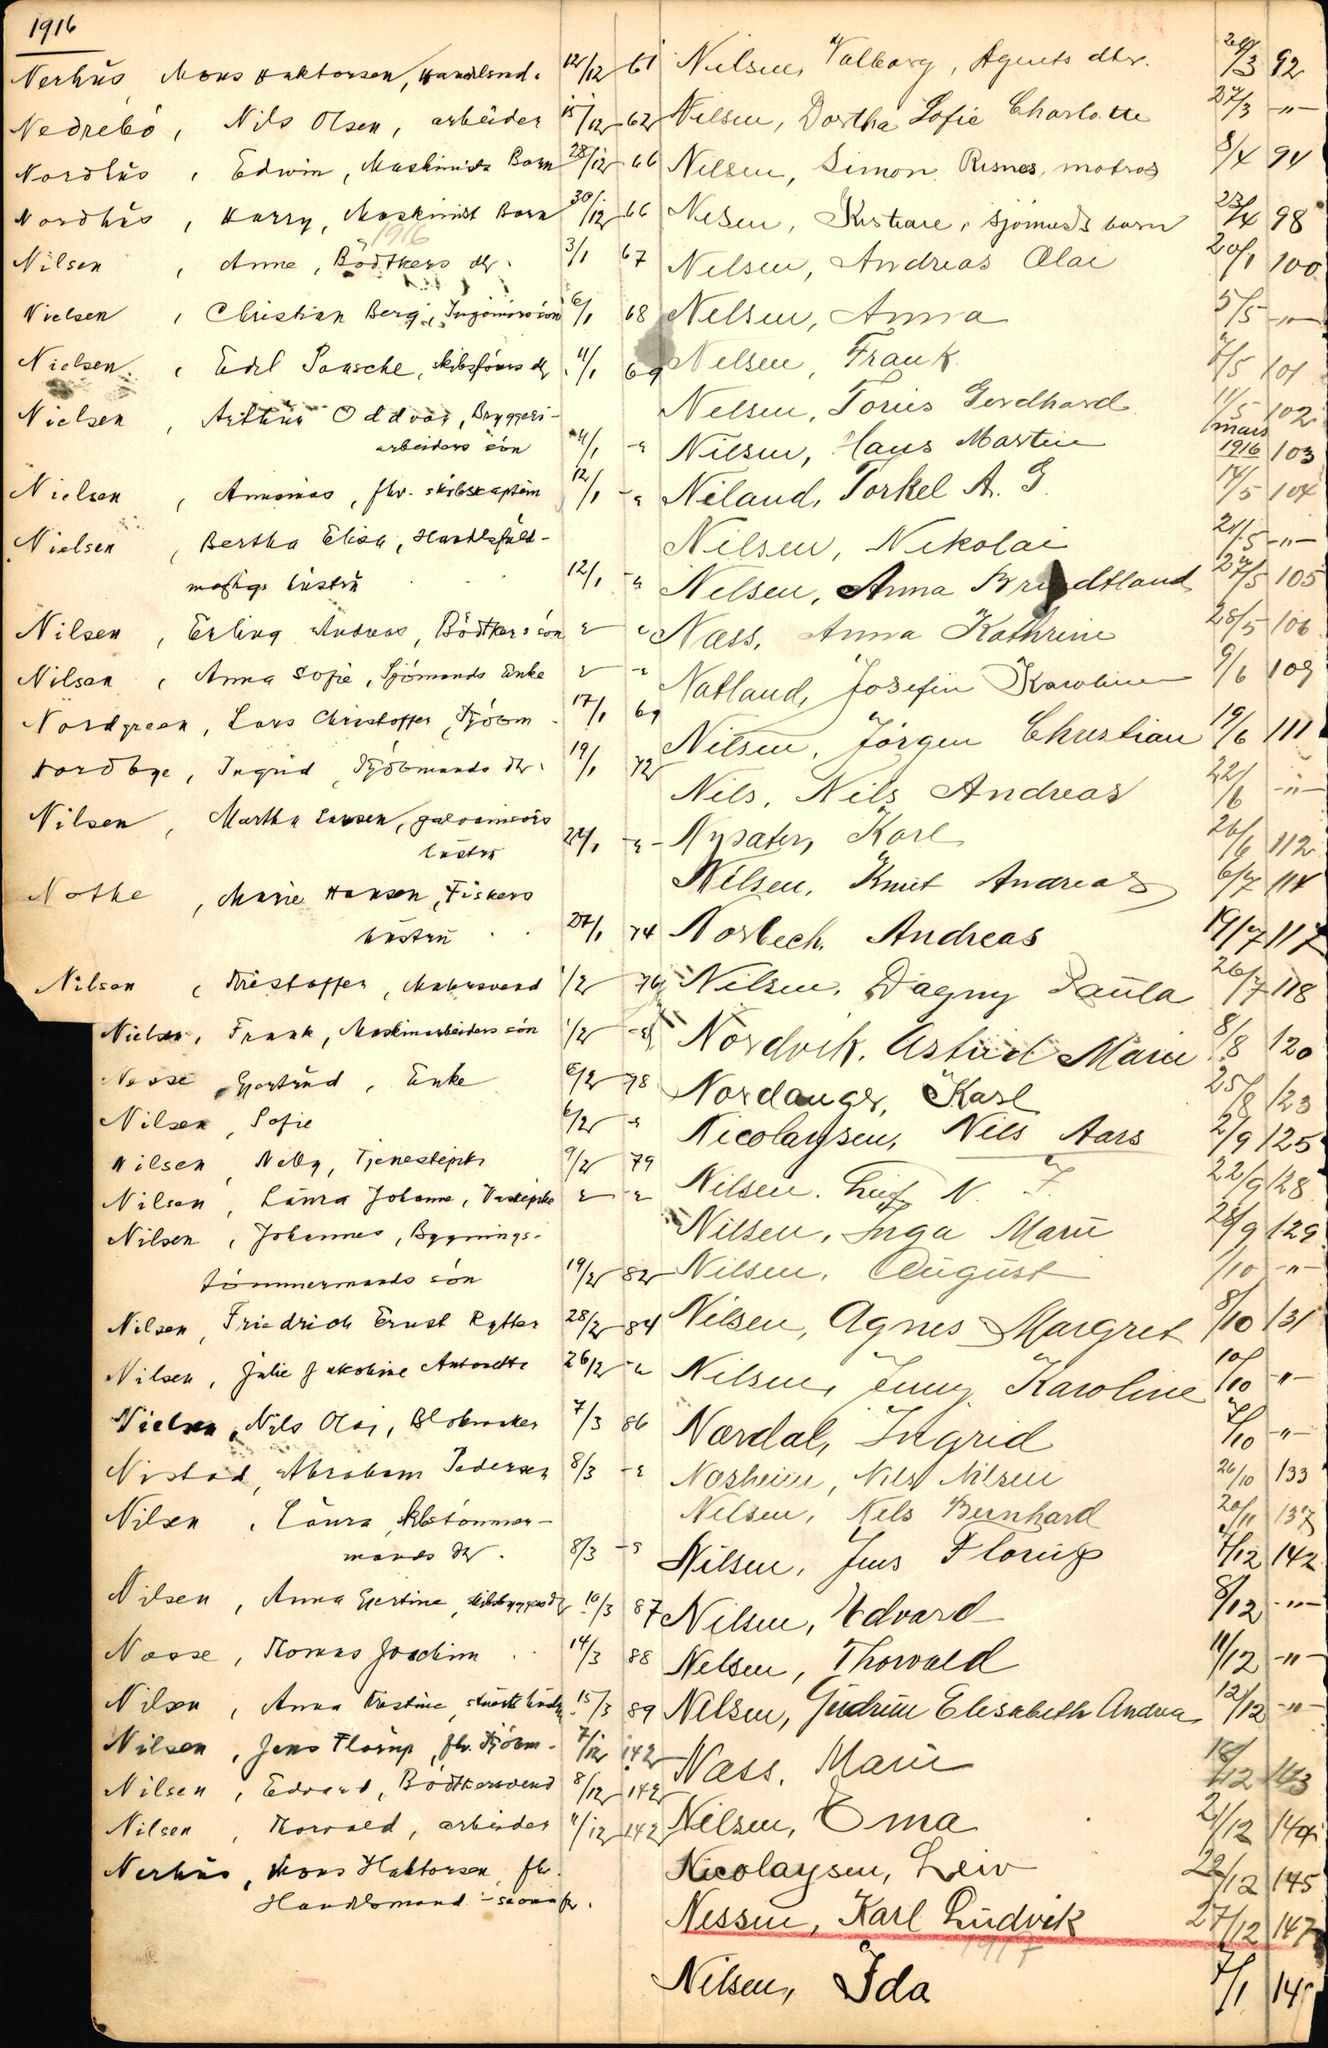 1916
Nerhús, Mons Haktorsen, Handlend. 12/12 61
Nedrebö, Nils Olsen, arbeider 15/12 62
Nordhús, Edwin, Maskinists Barn 28/12 66
Nordhús, Harry, Maskinist Barn 30/12 66
1916
Nilsen, Anne, Bödtkers dtr. 3/1 67
Nielsen, Christian Berg, Ingeniörs sön 6/1 68
Nielsen, Edel Paasche, skibsförers dtr. 11/1 69
Nielsen, Arthur Oddvar, Bryggeri-
arbeiders sön 11/1 -"
Nielsen, Ananias, fhv. skibskaptein 12/1 -"
Nielsen, Bertha Elisa, Handelsfuld-
mægtigs hústrú 12/1 -"
Nilsen, Erling Andreas, Bödtkers sön " "
Nilsen, Anna Sofie, Sjömands Enke " -"
Nordgreen, Lars Christoffer, Kjöbm. 17/1 69
Nordbye, Ingrid, Kjöbmands dtr. 19/1 72
Nilsen, Martha Larsen,
hústrú 24/1 -"-
Nothe, Marie Hansen, Fiskers
hústrú 27/1 74
Nilsen, Kristoffer, Malersvend 1/2 76
Nielsen, Frank, Maskinarbeiders sön 1/2 -"
Nesse, Gjertrúd, Enke 6/2 78
Nilsen, Sofie 6/2 -"
Nilsen, Nelly, Tjenestepike 9/2 79
Nilsen, Laúra Johanne, " -"
Nilsen, Johannes, Bygnings-
tömmermands sön 19/2 82
Nilsen, Friedrich Ernst Rytter 28/2 84
Nilsen, Júlie Jakobine Antonette 26/2 -"
Nielsen, Nils Olai, Blokmaker 7/3 86
Nistad, Abraham Pedersen 8/3 -"
Nilsen, Laúra, skibstömmer-
mands dtr. 8/3 -"
Nilsen, Anna Gjertine, skibsbyggers dtr. 10/3 87
Nesse, Thomas Joachim 14/3 88
Nilsen, Anna Kristine, 15/3 89
Nilsen, Jens Flörup, fhv. Kjöbm. 7/12 142
Nilsen, Edvard, Bödtkersvend 8/12 142
Nilsen, Thorvald, arbeider 11/12 142
Nerhús, Mons Haktorsen, fhv.
Handlsmand - se ovenfr.
Nilsen, Valborg, Agents dtr. 24/3 92
Nilsen, Dorthea Sofie Charlotte 27/3 -"-
Nilsen, Simon Risnes, matros 8/4 94
Nilsen, Kristiane, sjömands barn 23/4 98
Nilsen, Andreas Olai 20/1 100
Nilsen, Anna 5/5 -"-
Nilsen, Frank 7/5 101
Nilsen, Gerdhard 11/5 102
Nilsen, Hans Martin mars 1916 103
Niland, Torkel A. G. 14/5 104
Nilsen, Nikolai 21/5 -"-
Nilsen, Anna 27/5 105
Næss, Anna Kathrine 28/5 106
Natland, Josefine Karoline 9/6 109
Nilsen, Jörgen Christian 19/6 111
Nils, Nils Andreas 22/6 -"-
Nysater, Karl 26/6 112
Nilsen, Knut Andreas 6/7 114
Norbech, Andreas 19/7 117
Nilsen, Dagny Paúla 26/7 118
Nordvik, Astrid Marie 8/8 120
Nordanger, Karl 25/8 123
Nicolaysen, Nils Aars 2/9 125
Nilsen, Leif N. F. 22/9 128
Nilsen, Inga Marie 28/9 129
Nilsen, Aúgúst 1/10 -"-
Nilsen, Agnes Margret 8/10 131
Nilsen, Jenny Karoline 10/10 -"-
Nordal, Ingrid 7/10 -"-
Nosheim, Nils Nilsen 26/10 133
Nilsen, Nils Bernhard 20/11 137
Nilsen, Jens Florup 7/12 142
Nilsen, Edvard 8/12 -"-
Nilsen, Thorvald 11/12 -"-
Nilsen, Gúdrún Elisabeth Andrea 12/12 -"-
Næss, Marie 18/12 143
Nilsen, Oma 21/12 144
Nicolaysen, Leiv 22/12 145
Nessen, Karl Lúdvik 27/12 147
1917
Nilsen, Ida 7/1 14